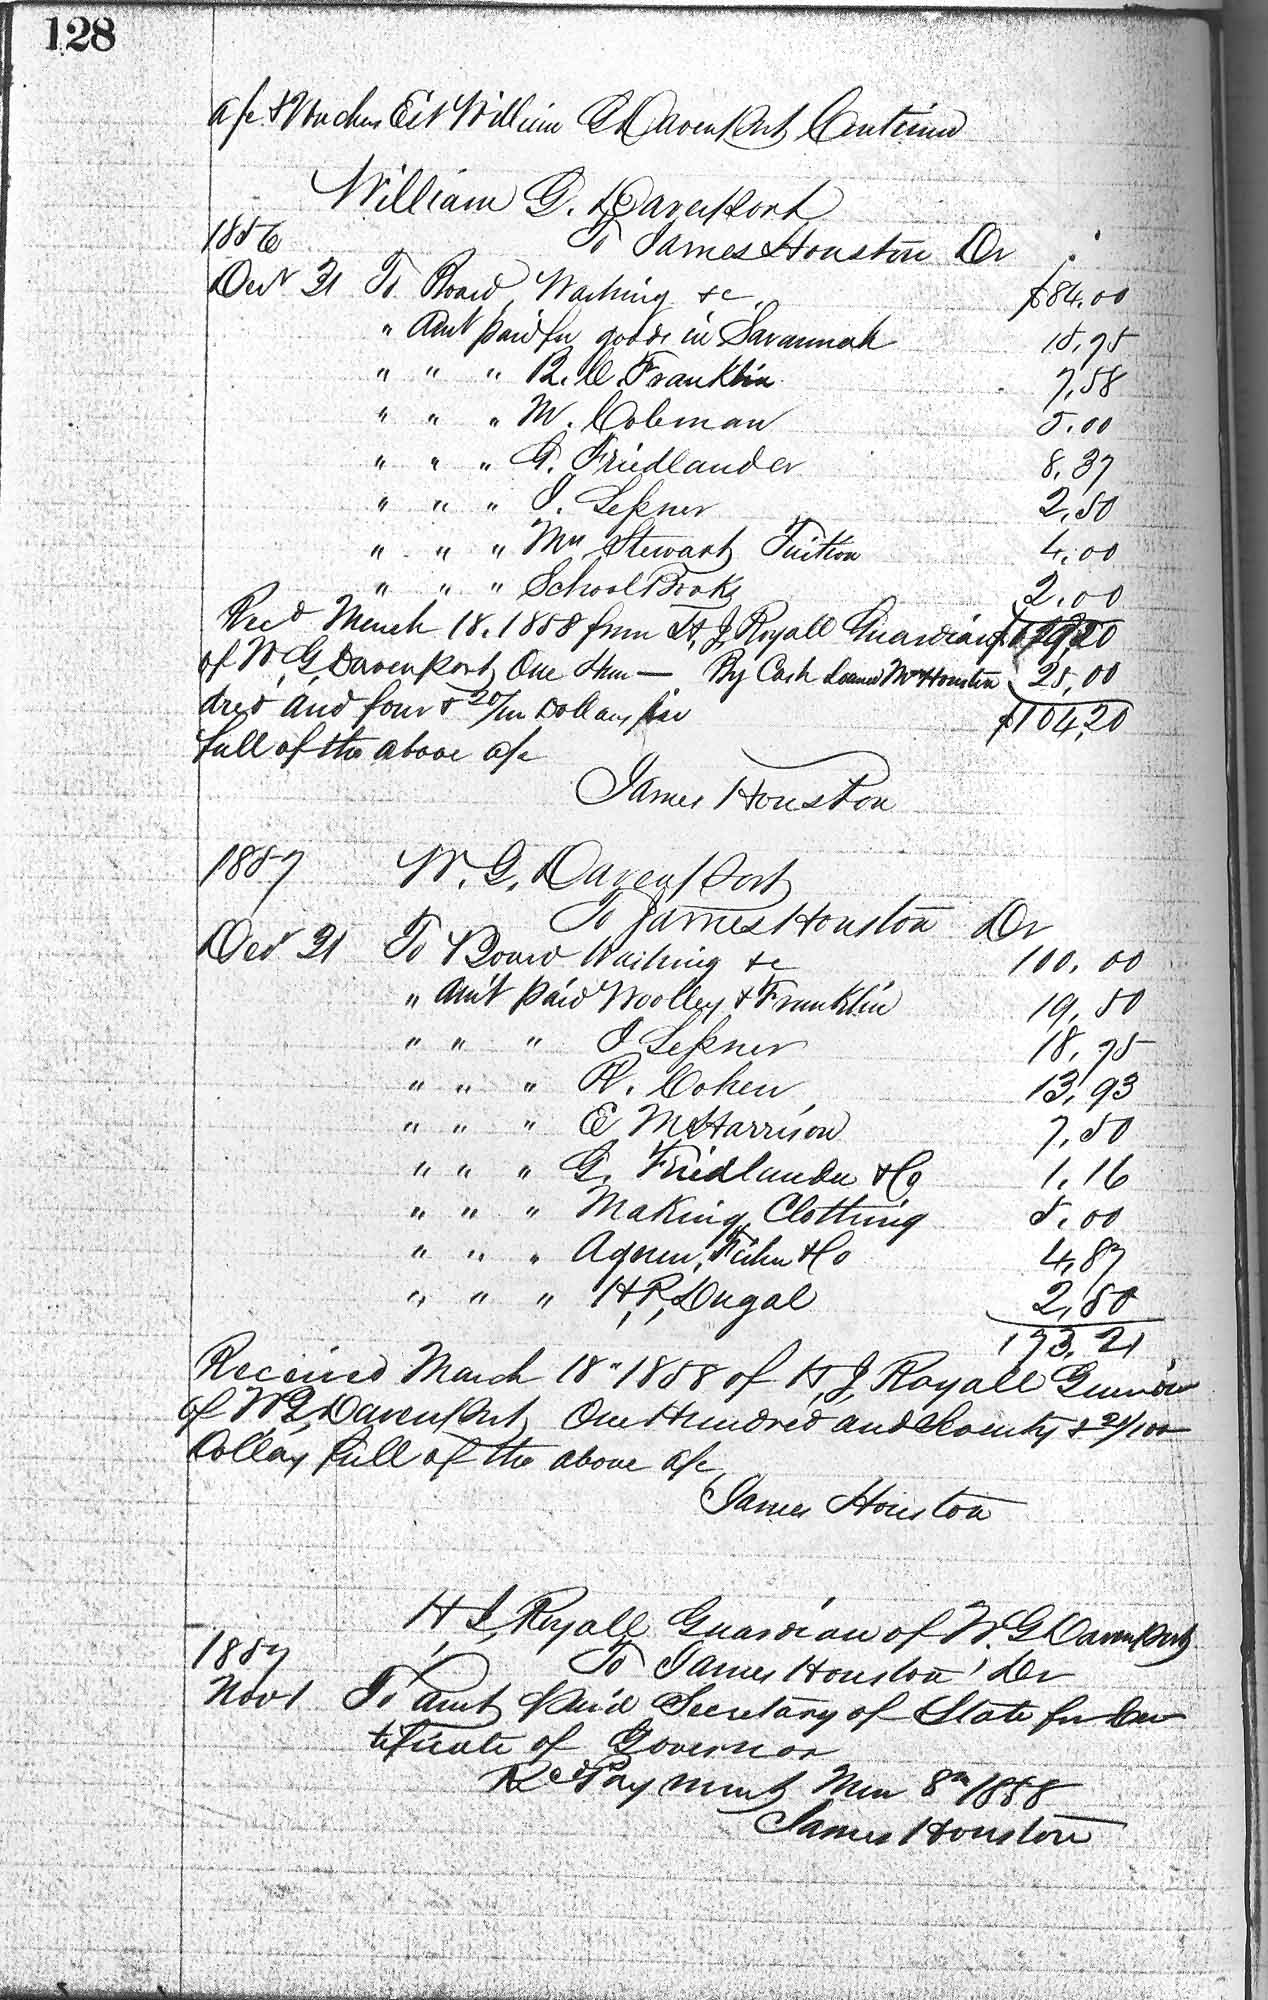 128
a/c & Vouchers Est William G Davenport Continued
William G. Davenport
1856 To James Houston Dr
Decr 31 To Board, Washing &c $84.00
" Amt paid for goods in Savannah 15,75
" " " R. C. Franklin 7,58
" " " M. Coleman 5.00
" " " G. Friedlander 8,37
" " " J. Lessner 2,50
" " " Mrs Stewart Tuition 4.00
" " " School Books 2.00
Recd March 18, 1858 from H, J, Royall Guardian $129,20
of W, G, Davenport One Hun— By Cash Loaned Mr Houston 25,00
dred and four & 20/100 Dollars in $104,20
full of the above a/c
James Houston
1857 W. G. Davenport
To James Houston Dr
Decr 31 To Board Washing &c 100.00
" Am't paid Woolley & Franklin 19,50
" " " J Lessner 18,75
" " " R. Cohen 13,93
" " " E McHarrison 7,50
" " " G. Friedlander & Co 1,16
" " " Making Clothing 5.00
" " " Agnew, Fisher & Co 4,87
" " " H, P, Dugal 2,50
173,21
Received March 18" 1858 of H, J, Royall Guardian
of W G, Davenport One Hundred and Seventy & 21/100
Dollars full of the above a/c
James Houston
H J, Royall Guardian of W. G Davenport
1857 To James Houston Dr
Nov 1 To amt paid Secretary of State for Cer
tificate of Governor
Recd Payment Mar 8th 1858
James Houston